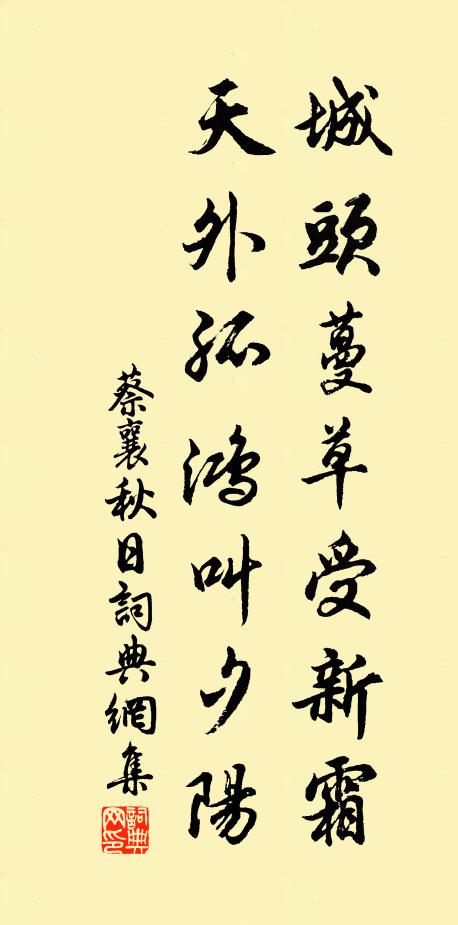 城頭蔓草受新霜
天外孤鴻叫夕陽
蔡襄秋日詞典網集
詞典網印